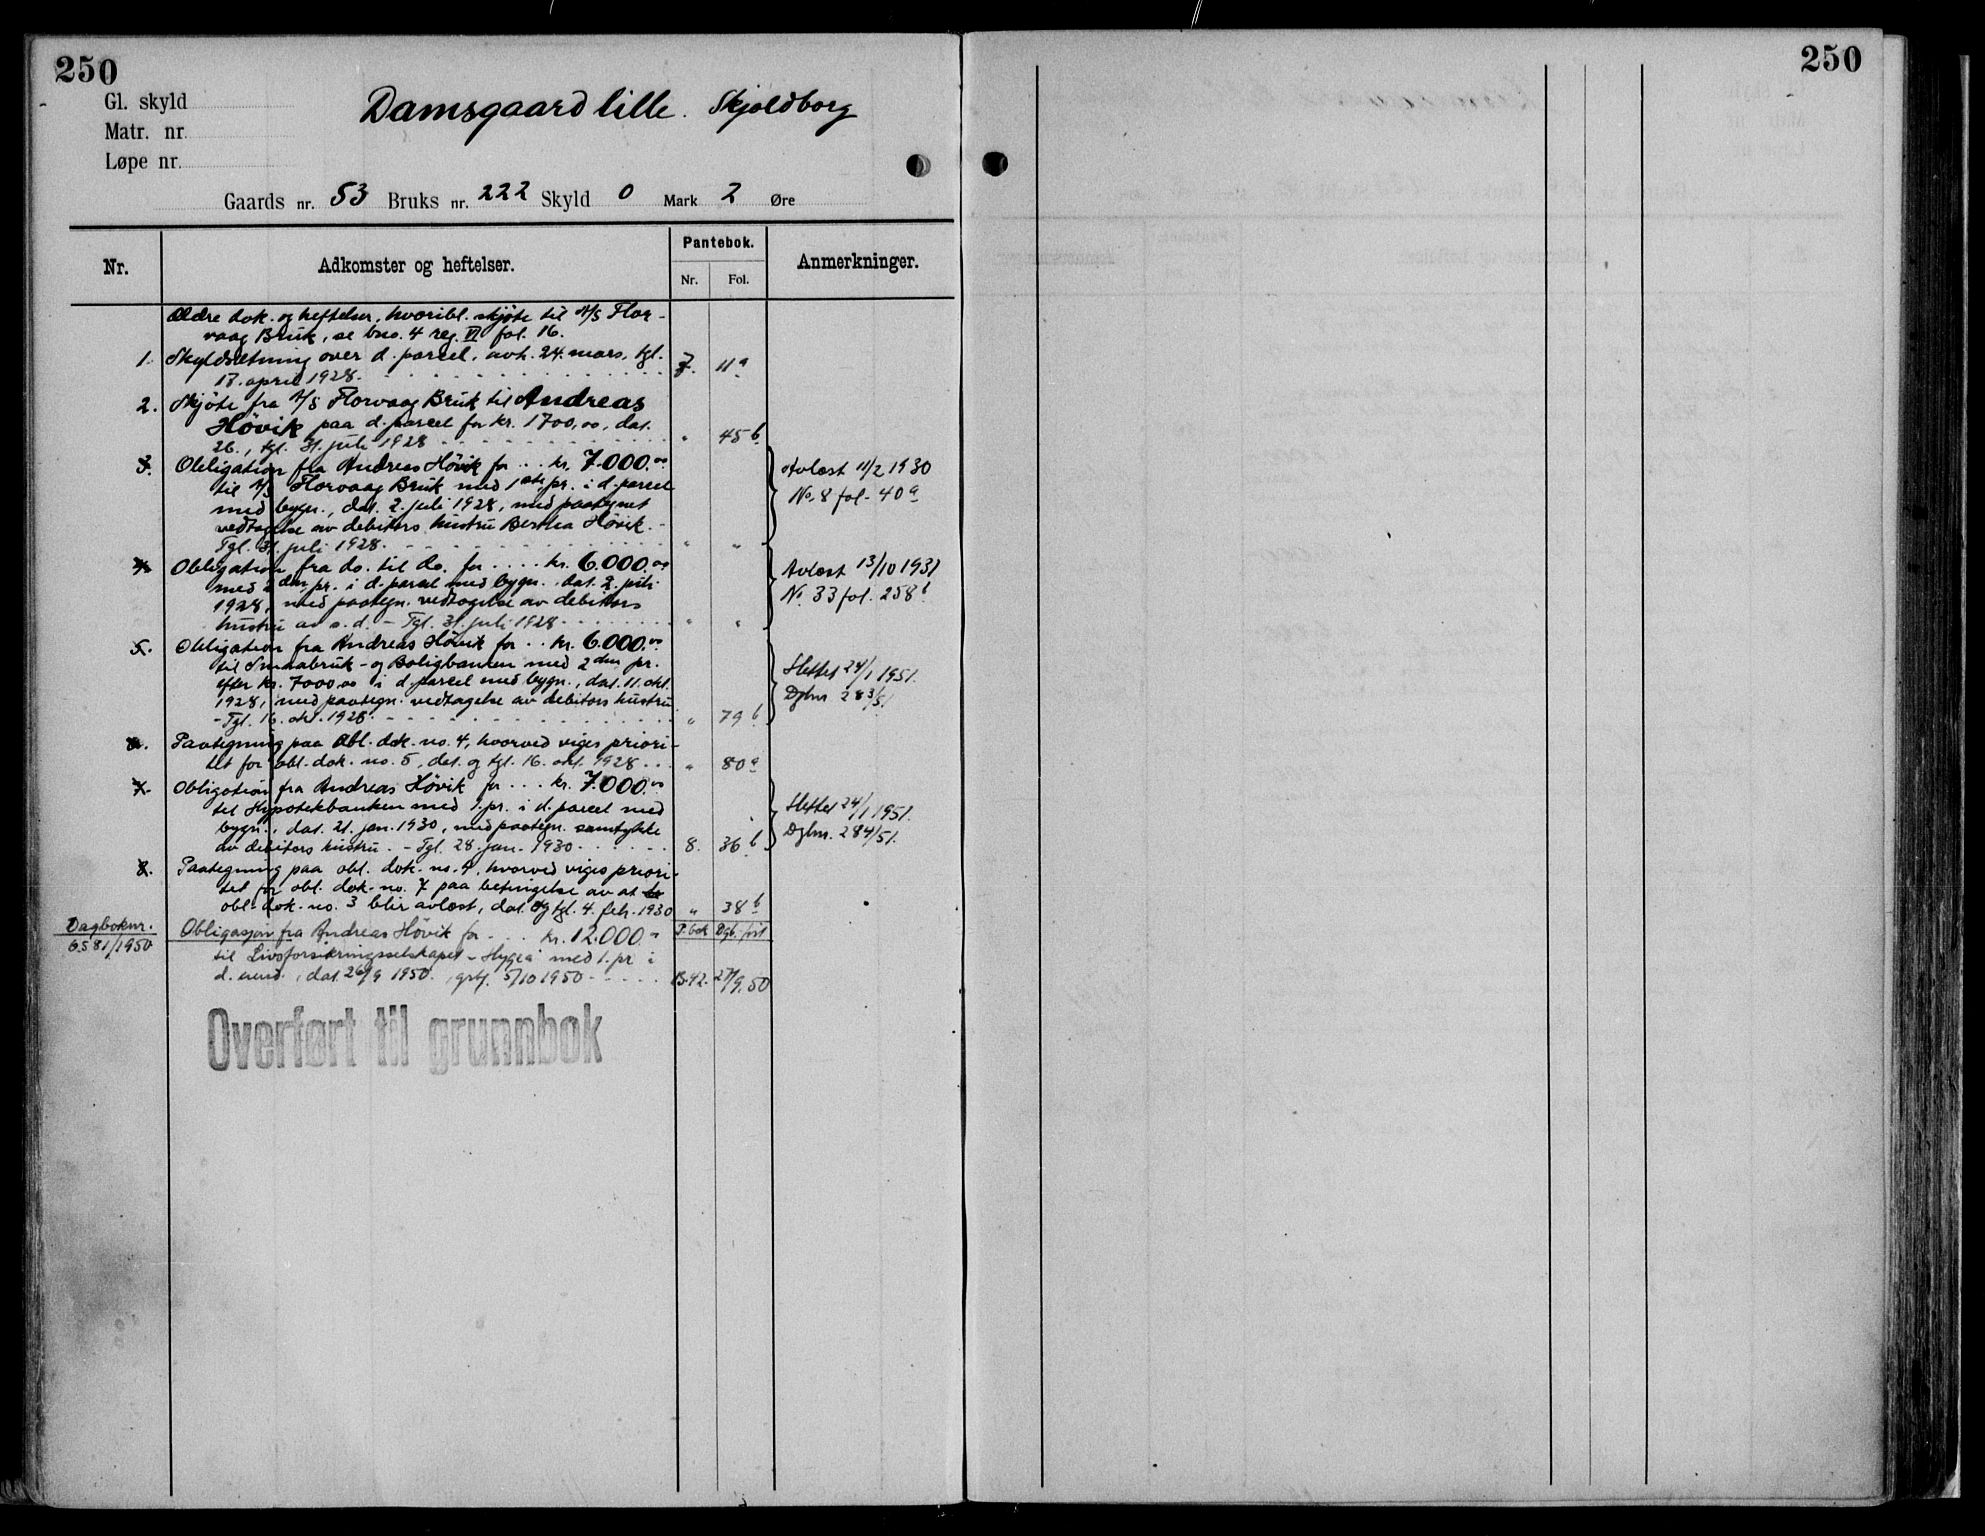 250
250
Gl. skyld
Matr. nr.
Løpe nr.
Damsgaard lille. Skjoldborg
Gaards nr. 53 Bruks nr. 222 Skyld 0 Mark 2 Øre
Nr.
Adkomster og heftelser.
Pantebok.
Nr. Fol.
Anmerkninger.
Ældre dok. og heftelser, hvoribl. skjøte til A/S Flor-
vaag Bruk, se bno. 4 reg. VI fol. 16.
1. Skyldsetning over d. parcel, avh. 24. mars, tgl.
17. april 1928. 7. 11a
2. Skjøte fra A/S Florvaag Bruk til Andreas
Hövik paa d. parcel for kr. 1700,00, dat.
26., tgl. 31. juli 1928 " 45b
3. Obligation fra Andreas Hövik for .. kr. 7.000.00
til A/S Florvaag Bruk med 1ste pr. i d. parcel
med bygn., dat. 2. juli 1928, med paategnet
vedtagelse av debitors hustru Bertha Hövik. -
Tgl. 31. juli 1928. " "
Avlæst 11/2 1930
No. 8 fol. 40a
4. Obligation fra do. til do. for .... kr. 6.000.00
med 2den pr. i d. parcel med bygn., dat. 2. juli
1928, med paategn. vedtagelse av debitors
hustru av s. d. - Tgl. 31. juli 1928 " "
Avlæst 13/10 1931
No. 33 fol. 258b
5. Obligation fra Andreas Hövik for .. kr. 6.000.00
til Smaabruk- og Boligbanken med 2den pr.
efter kr. 7000,00 i d. parcel med bygn., dat. 11. okt.
1928, med paategn. vedtagelse av debitors hustru
- Tgl. 16. okt. 1928. " 79b
Slettet 24/1 1951.
Dgbnr. 283/51
6. Paategning paa obl. dok. no. 4, hvorved viges priori-
tet for obl. dok. no. 5, dat. og tgl. 16. okt. 1928 ... " 80a
7. Obligation fra Andreas Hövik for ... kr. 7.000.00
til Hypotekbanken med 1. pr. i d. parcel med
bygn., dat. 21. jan. 1930, med paategn. samtykke
av debitors hustru. - Tgl. 28. jan. 1930 8. 36b
Slettet 24/1 1951.
Dgbnr. 284/51.
8. Paategning paa obl. dok. no. 4, hvorved viges priori-
tet for obl. dok. no. 7 paa betingelse av at
obl. dok. no. 3 blir avlæst, dat. og tgl. 4. febr. 1930 " 38b
Dagboknr. Obligasjon fra Andreas Hövik for ... kr. 12.000.- P. bok Dgb. ført
6581/1950
til Livsforsikringsselskapet "Hygea" med 1. pr i
d. eiend., dat 26/9 1950., 5/10 1950 B.42. 27/9.50
Overført til grunnbok